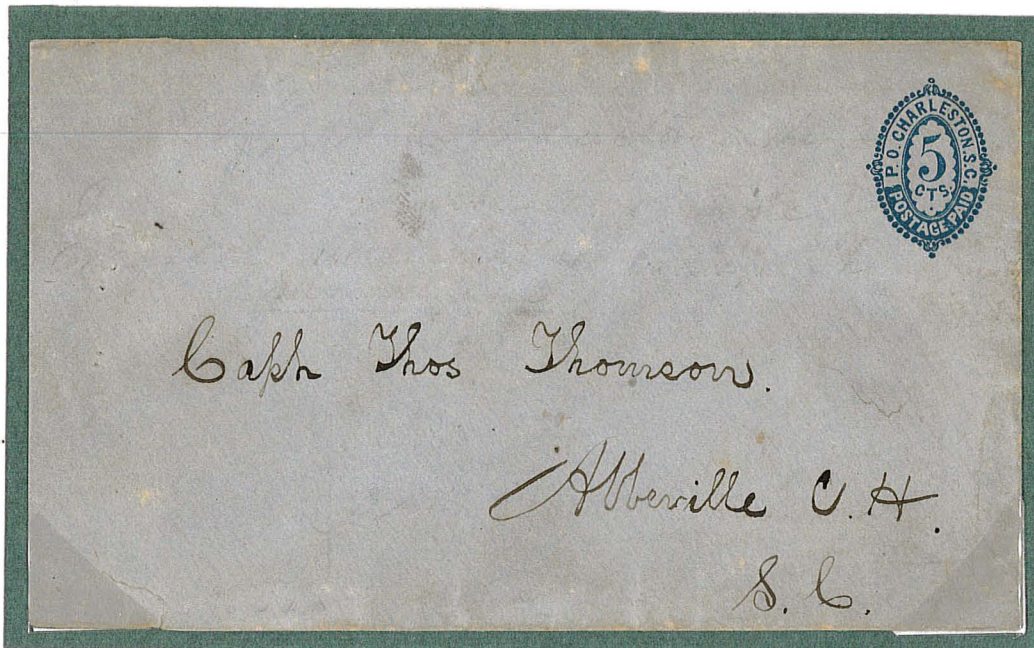 P.O. CHARLESTON.S.C.
5
CTS.
POSTAGE PAID
Capt Thos Thomson.
Abbeville C.H.
S.C.